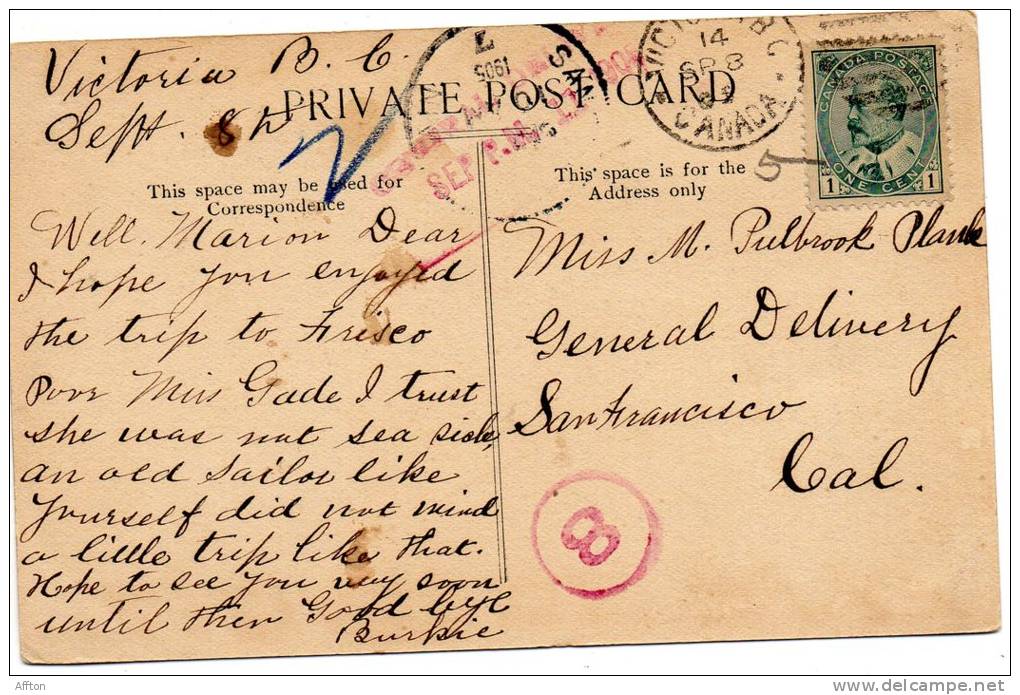 Victoria B. C.
Sept. 8th
PRIVATE POST CARD
1905
14
SP 8
CANADA
CANADA POSTAGE
1 ONE CENT 1
5
This space may be used for
Correspondence
This space is for the
Address only
Well. Marion Dear
I hope you enjoyed
the trip to Frisco
Poor Miss Gade I trust
she was not sea sick,
an old sailor like
yourself did not mind
a little trip like that.
Hope to see you very soon
until then Good bye
Burkie
Miss M. Pulbrook
General Delivery
San Francisco
Cal.
8
Affton
delcampe.net